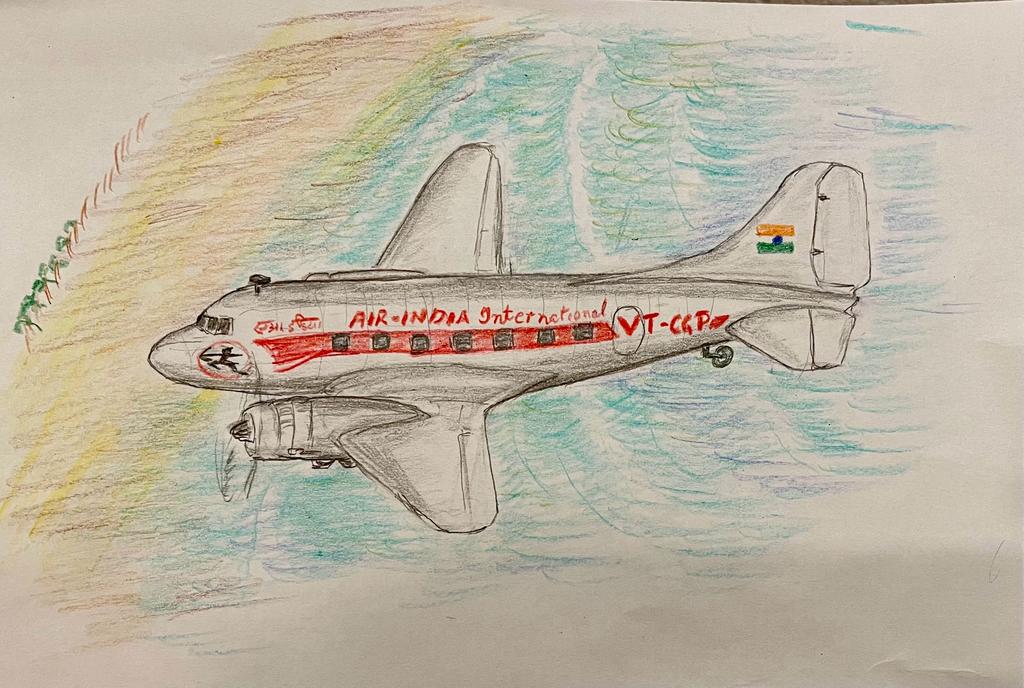 AIR-INDIA International
VT-CGP